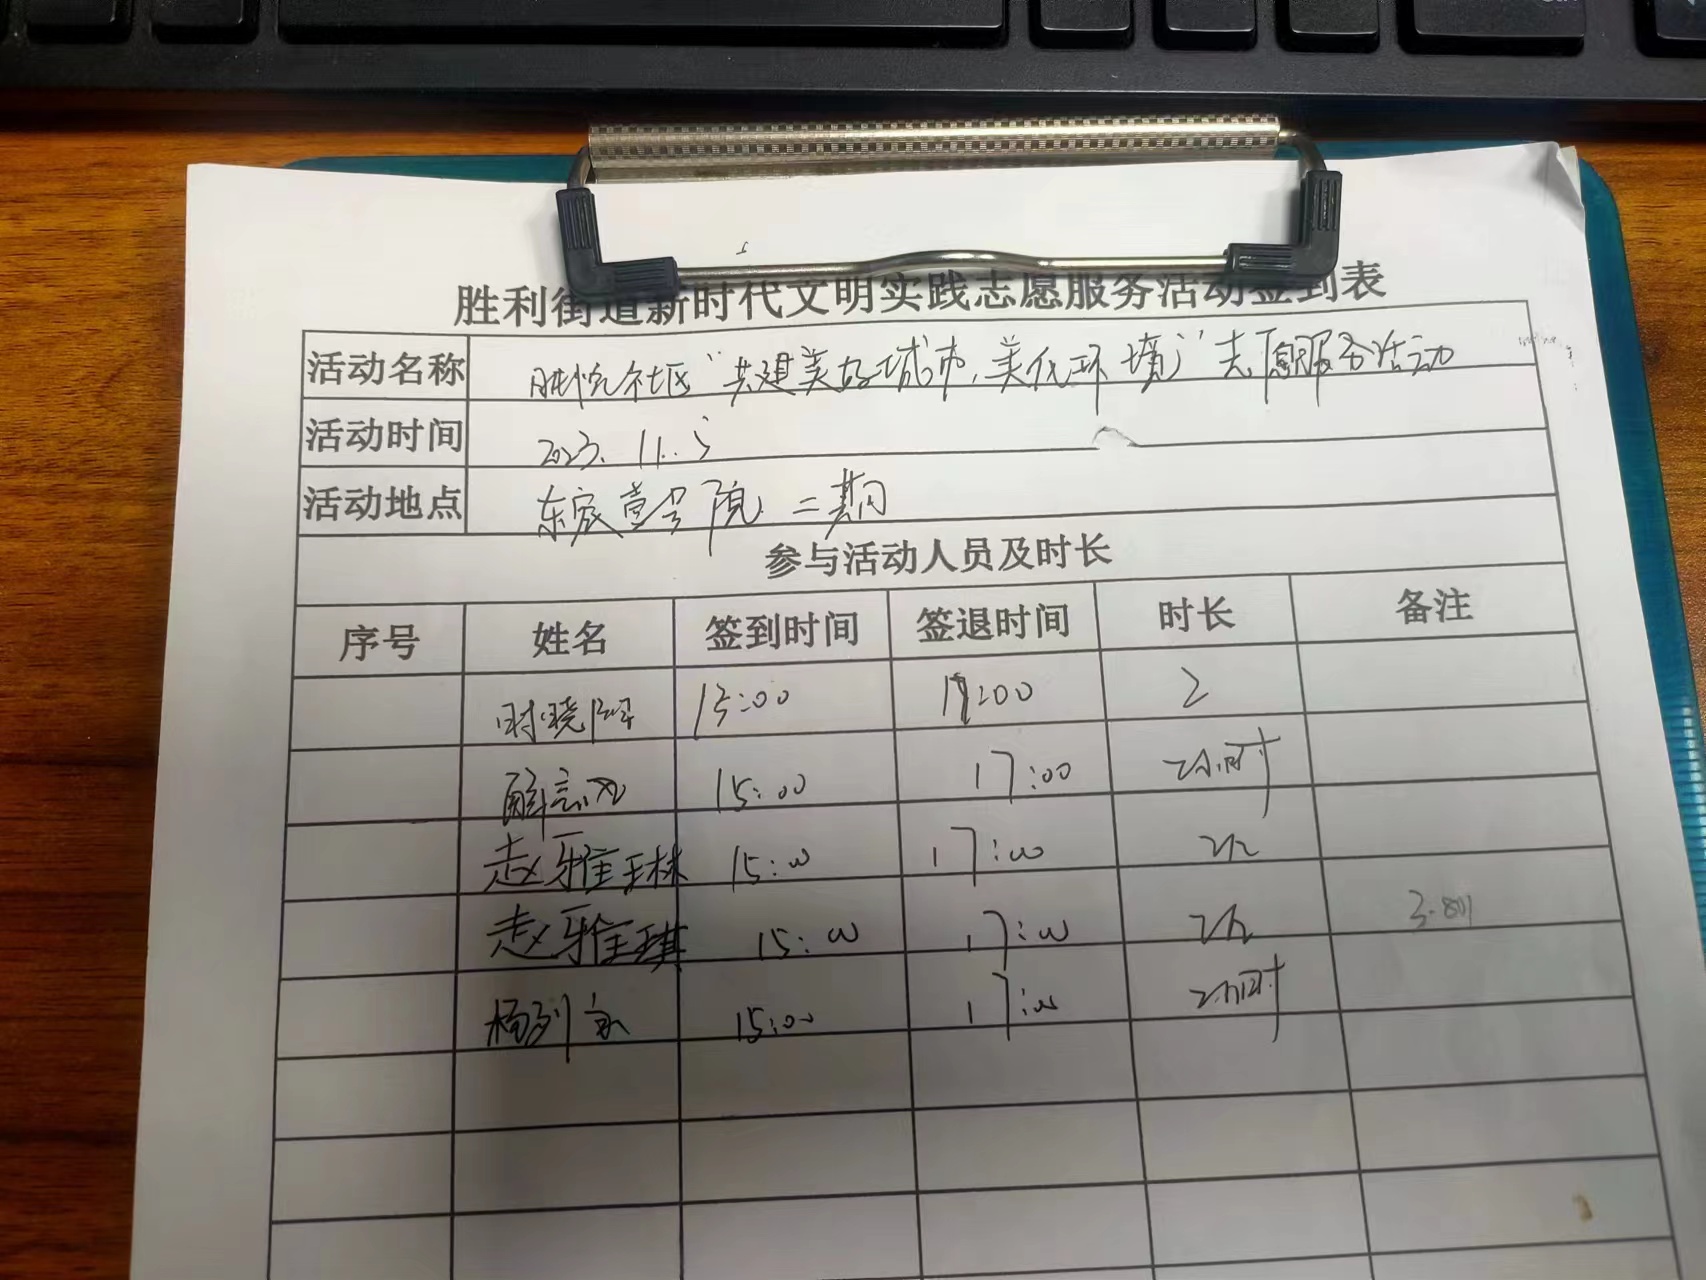 胜利街道新时代文明实践志愿服务活动签到表
活动名称 胜悦社区“共建美好城市,美化环境”志愿服务活动
活动时间 2023.11.5
活动地点 东宸壹号院二期
参与活动人员及时长
序号 姓名 签到时间 签退时间 时长 备注
时晓 15:00 17:00 2
解 15:00 17:00 2小时
赵雅琳 15:00 17:00 2h
赵雅琪 15:00 17:00 2h
杨列 15:00 17:00 2小时